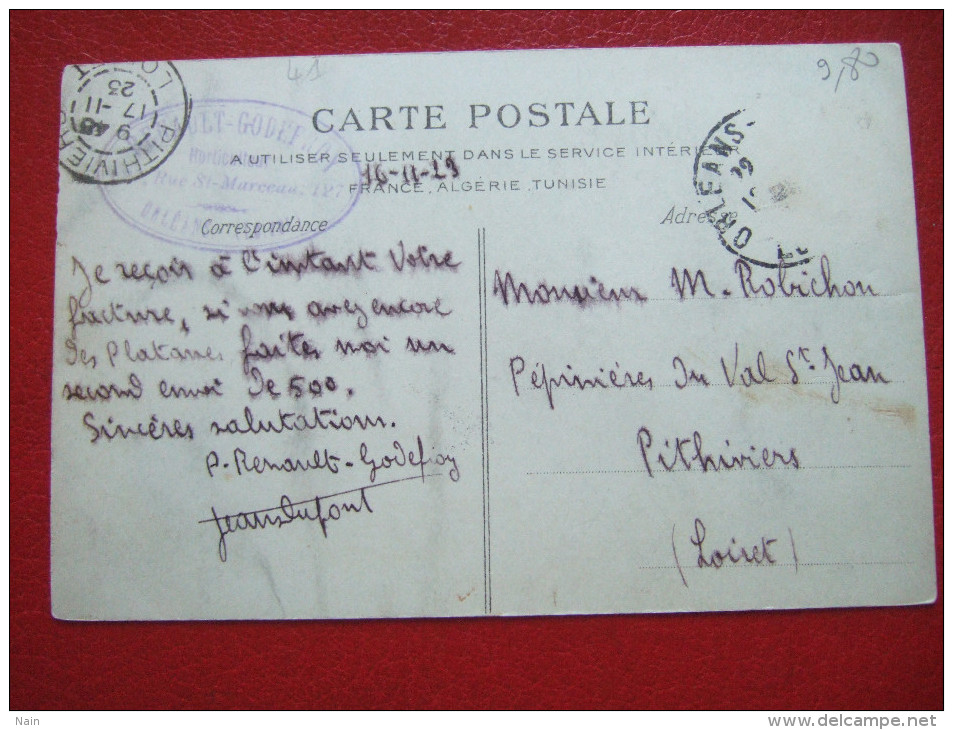 41
9,80
CARTE POSTALE
A UTILISER SEULEMENT DANS LE SERVICE INTÉRIEUR
FRANCE, ALGÉRIE, TUNISIE
16-11-23
PITHIVIERS
9 40
17-11
23
LOIRET
RENAULT-GODEFROY
Horticulteur
Rue St-Marceau, 127
ORLÉANS
ORLEANS-
Correspondance
Adresse
Je reçois à l'instant Votre
facture, si vous avez encore
des Platanes faites moi un
second envoi de 500.
Sincères salutations.
P. Renault-Godefroy
Jean Dufont
Monsieur M. Robichon
Pépinières du Val St Jean
Pithiviers
(Loiret)
Nain
delcampe.net